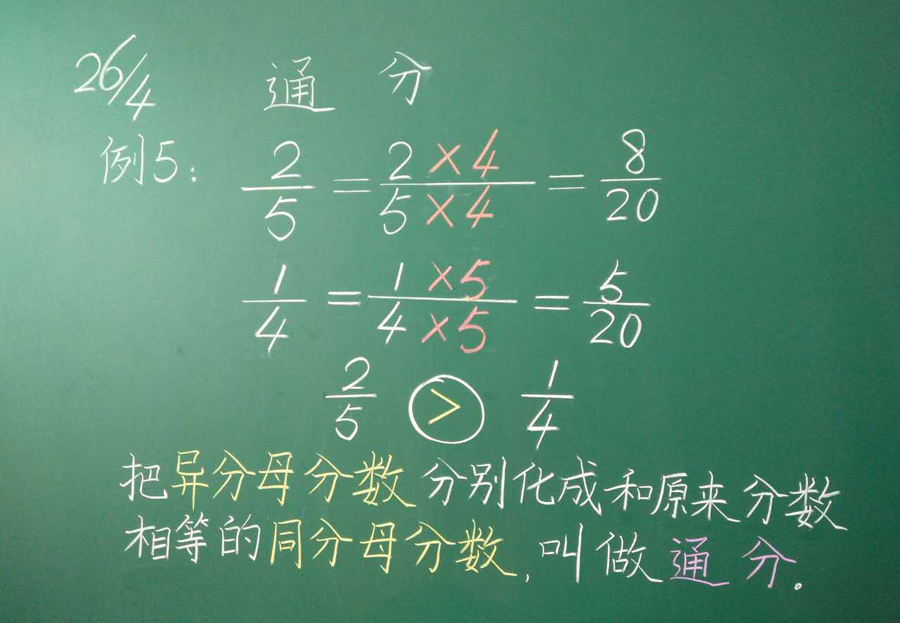 26/4 通分
例5： 2/5 = 2×4/5×4 = 8/20
1/4 = 1×5/4×5 = 5/20
2/5 > 1/4
把异分母分数分别化成和原来分数
相等的同分母分数,叫做通分。